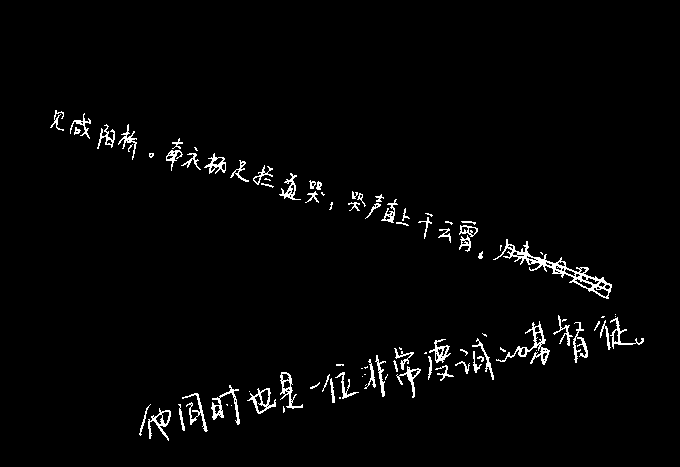 见咸阳桥。牵衣顿足拦道哭，哭声直上干云霄。
他同时也是一位非常虔诚的基督徒。